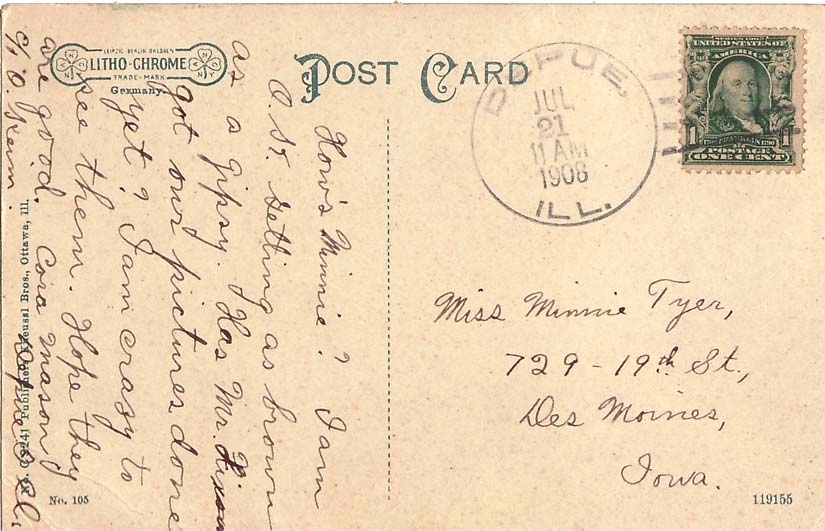 LEIPZIG BERLIN DRESDEN
LITHO-CHROME
TRADE-MARK
Germany.
POST CARD
DEPUE,
JUL
21
11 AM
1908
ILL.
SERIES 1902
UNITED STATES OF
AMERICA
1 FRANKLIN 1
POSTAGE
ONE CENT
How's Minnie? I am
O.K. Getting as brown
as a gipsy. Has Mr. Dixon
got our pictures done
yet? I am crazy to
see them. Hope they
are good. Cora Mason
c/o Depue Ill.
Miss Minnie Tyer,
729-19th St.,
Des Moines,
Iowa.
No. C 9241 Publisher Bros., Ottawa, Ill.
No. 105
119155